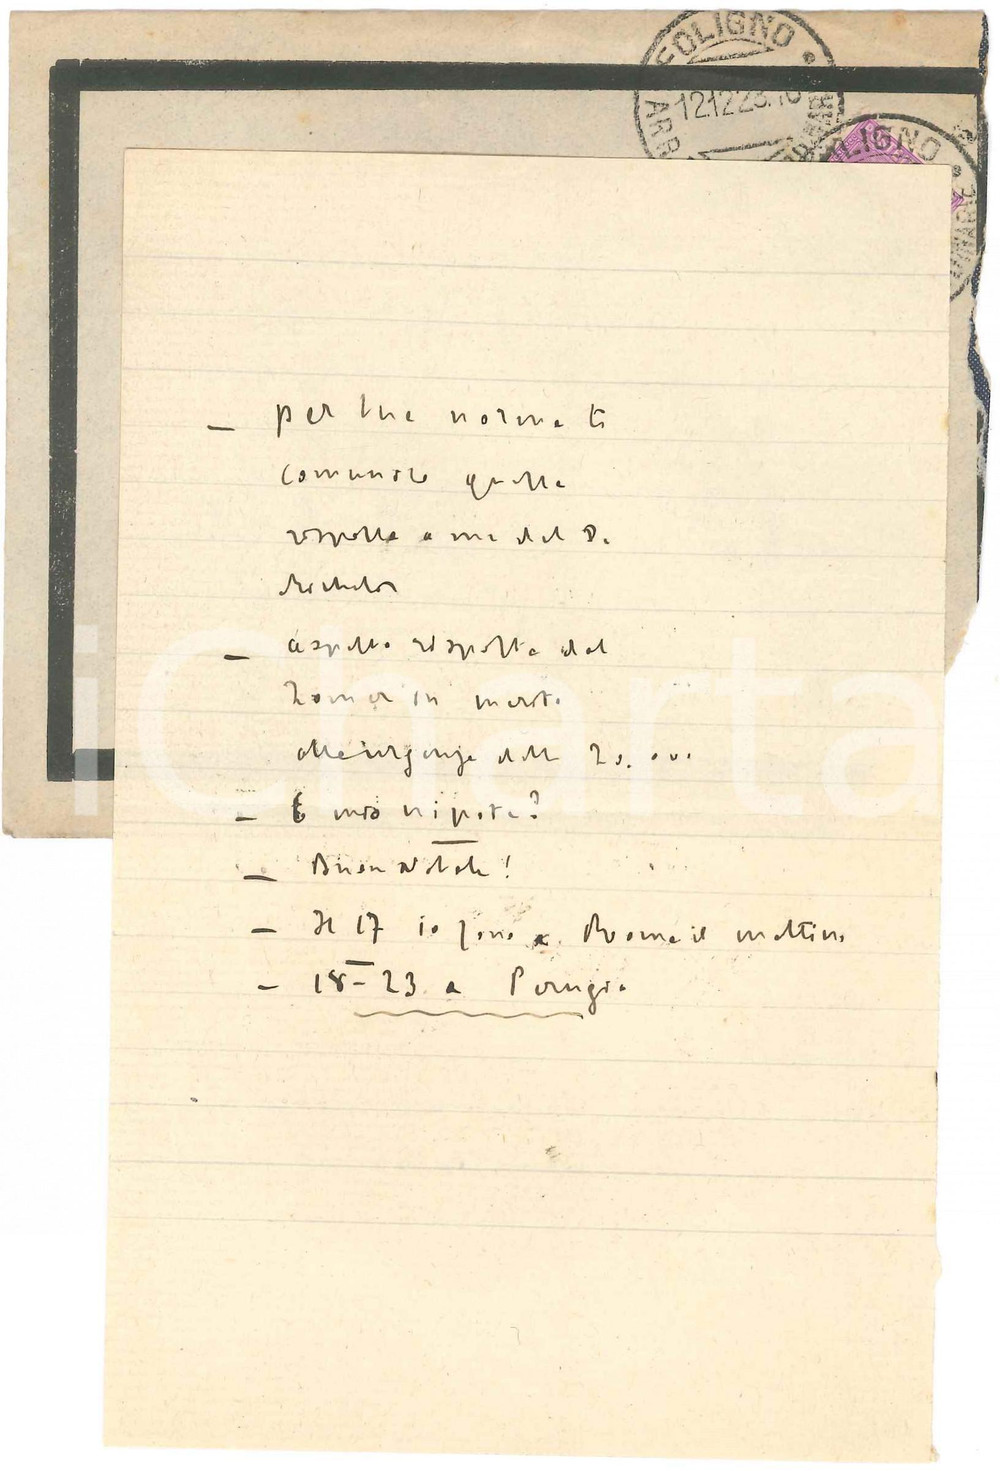 FOLIGNO
12.12.23.16
ARR
LIGNO
- per tua norma ti
comunico quella
risposta a me del
- aspetto risposta dal
in merito
all'urgenza delle 20.000
- È mio nipote?
- Buon Natale!
- Il 17 io sono a Roma il mattino
- 18-23 a Perugia
iCharta